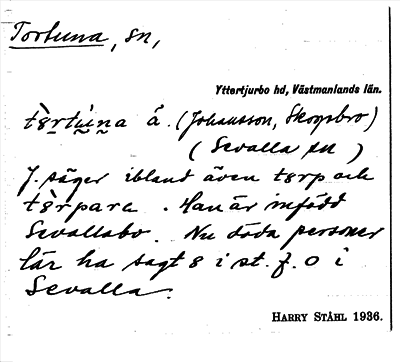 Tortuna, sn,
Yttertjurbo hd, Västmanlands län.
tȣ̀rtúna å. (Johansson, Skogsbro)
(Sevalla sn)
J. säger ibland även tȣrp och
tȣ̀rpara. Han är infödd
Sevallabo. Nu döda personer
lär ha sagt ȣ i st. f. o i
Sevalla.
HARRY STÅHL 1936.